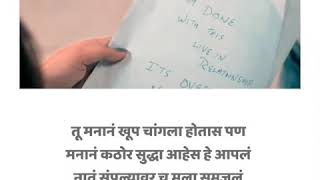 DONE
WITH THIS
LIVE IN
RELATIONSHIP
ITS OVER
तू मनानं खूप चांगला होतास पण
मनानं कठोर सुद्धा आहेस हे आपलं
नातं संपल्यावर च मला समजलं